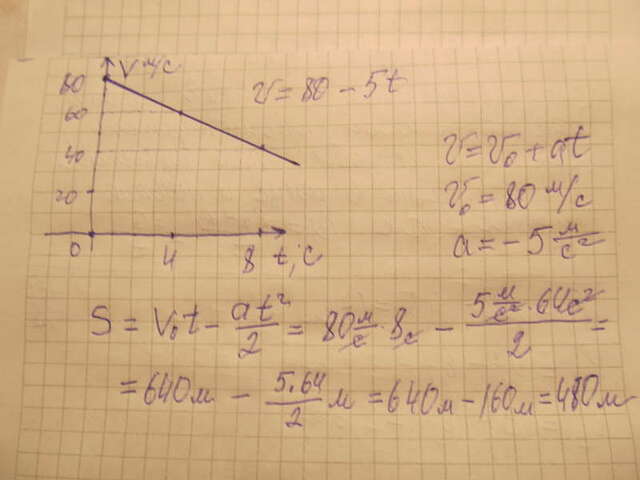 V м/с
80
60
40
20
0 4 8 t, с
v = 80 - 5t
v = v₀ + at
v₀ = 80 м/с
a = -5 м/с²
S = V₀t - at²/2 = 80 м/с · 8с - 5 м/с² · 64с²/2 =
= 640м - 5.64/2 м = 640м - 160м = 480м